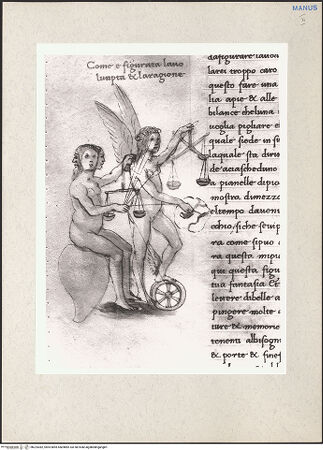 MANUS
Come e figurata lavo
lunpta & laragione
dafigurare lauolu
larei troppo caro
questo fare una
lia apie & alle
bilance cheluna
uoglia pigliare el
quale siede in su
laquale sta diri
de aciascheduno
a pianelle dipio
mostra dimezzo
eltempo dauoni
ochio, siche semp
ra come sipuo
ra questa
qui questa figu
tua fantasia
leuere dibelle a
pingere molte
ture & memorie
tenenti albisogn
& porte & fines